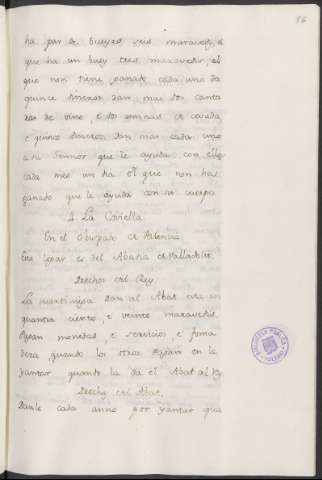 56
ha par de bueyes seis maravedis, e
que ha un buey tres maravedis, el
que non tiene ganado cada uno da
quince dineros dan mas dos canta
ras de vino, e dos eminas de cevada,
e quince dineros dan mas cada uno
a su Sennor que le ayuda con ellos
cada mes un ha el que non ha
ganado que le ayuda con su cuerpo
La Coviella
En el Obispado de Palencia
Este logar es del Abadia de Valladolid.
Derechos del Rey
La martiniega dan al Abat cada en
quantia ciento, e veinte maravedis.
Pagan monedas, e servicios, e fonsa
dera, quando los otros pagan en la
yantar quando la da el Abat al Rey
Derechos del Abat.
Danle cada anno por yantar qua
BIBLIOTECA PUBLICA
TOLEDO